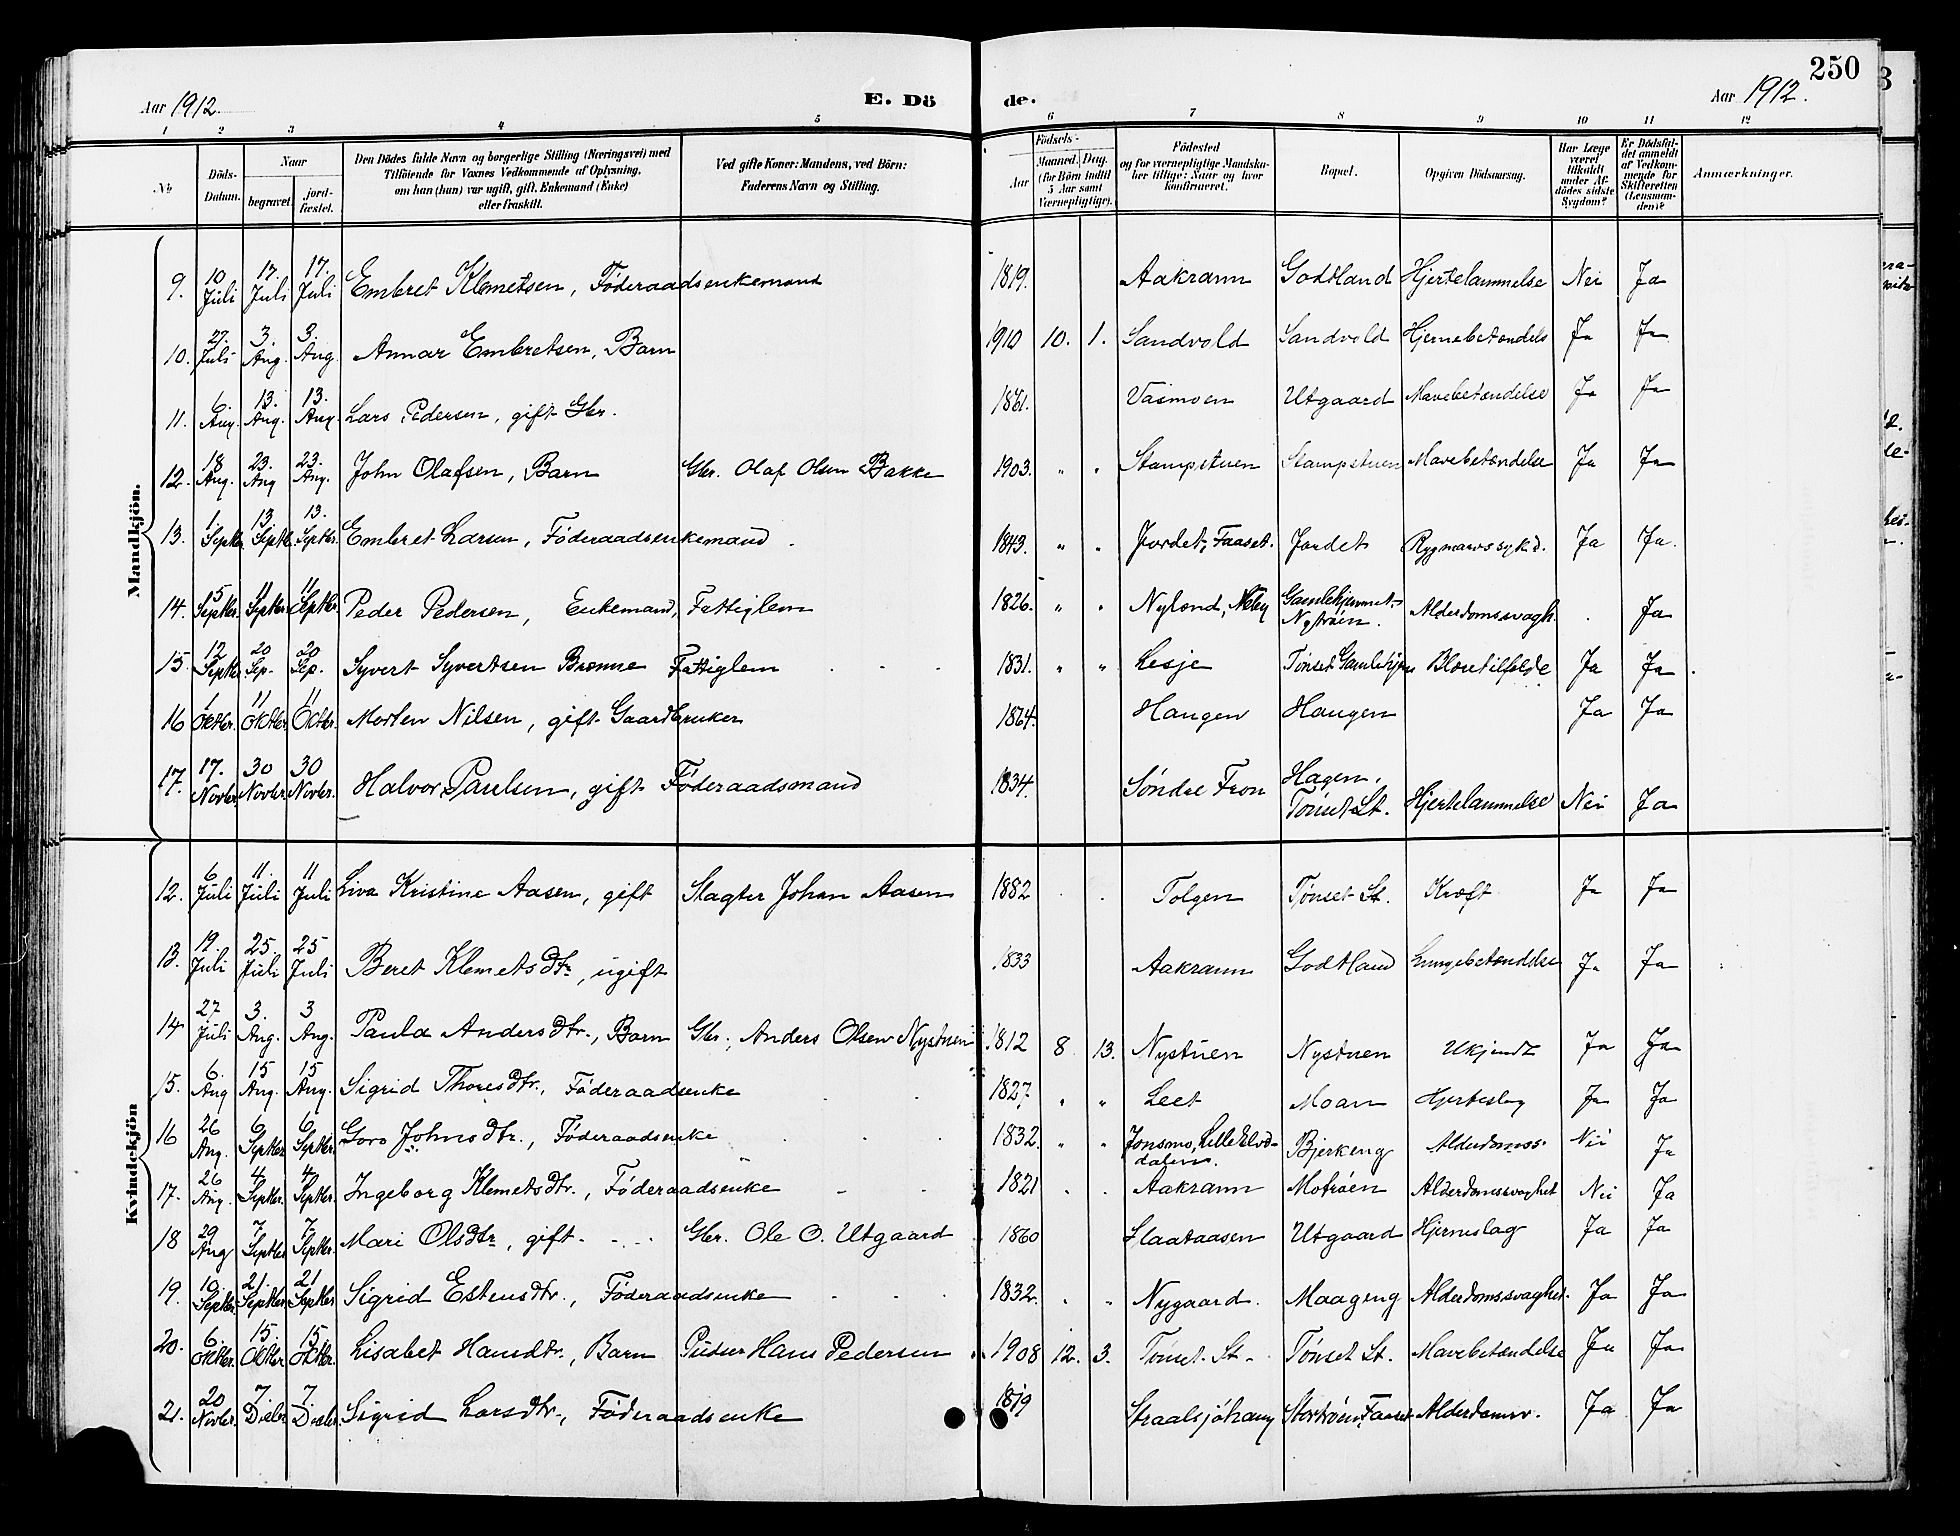 Aar 1912. E. Dö de. Aar 1912. 250
1 2 3 4 5 6 7 8 9 10 11 12
No Döds-Datum. Naar begravet. jord-fæstet. Den Dödes fulde Navn og borgerlige Stilling (Næringsvei) med Tilföiende for Voxnes Vedkommende af Oplysning, om han (hun) var ugift, gift, Enkemand (Enke) eller fraskilt. Ved gifte Koner: Mandens, ved Börn: Faderens Navn og Stilling. Födsels- Aar Maaned. Dag. (for Börn indtil 5 Aar samt Værnepligtige). Födested og for værnepligtige Mandskaber tillige: Naar og hvor konfirmeret. Bopæl. Opgiven Dödsaarsag. Har Læge været tilkaldt under Afdödes sidste Sygdom? Er Dödsfaldet anmeldt af Vedkommende for Skifteretten (Lensmanden)? Anmærkninger.
Mandkjön.
9. 10 Juli 17. Juli 17. Juli Embret Klemetsen, Föderaadsenkemand 1819. Aakrann Godtland Hjertelammelse Nei Ja
10. 27. Juli 3. Aug. 3. Aug. Annar Embretsen, Barn 1910 10. 1. Sandvold Sandvold Hjernebetændels Ja Ja
11. 6. Aug. 13. Aug. 13. Aug. Lars Pedersen, gift Gbr. 1861. Vasmoen Utgaard Mavebetændelse Ja Ja
12. 18 Aug. 23. Aug 23. Aug. John Olafsen, Barn Gbr. Olaf Olsen Bakke 1903. " " Stampstuen Stampstuen Mavebetændelse Ja Ja
13. 1. Septbr. 13. Septbr. 13. Septbr. Embret Larsen, Föderaadsenkemand. 1843. " " Jordet, Faaset. Jordet Rygmarvssykd. Ja Ja.
14. 5 Septbr. 11 Septbr. 11 Septbr. Peder Pedersen, Enkemand, Fattiglem 1826. " " Nyland, Neby Gamlehjemmet, Nytröen. Alderdomssvagh. . Ja
15. 12 Septbr. 20 Sep. 20 Sep. Syvert Syvertsen Brenne Fattiglem 1831. " " Lesje Tönset Gamlehjem Blæretilfælde Ja Ja.
16 6 Oktbr. 11 Oktbr. 11 Oktbr. Morten Nilsen, gift Gaardbruker 1864. Haugen Haugen Ja Ja
17. 17. Novbr. 30 Novbr. 30 Novbr. Halvor Paulsen, gift Föderaadsmand 1834. Söndre Fron Hagen, Tönset St. Hjertelammelse Nei Ja
Kvindekjön
12. 6 Juli 11. Juli 11 Juli Liva Kristine Aasen, gift Slagter Johan Aasen 1882 Tolgen Tönset St. Kræft Ja Ja
13. 19. Juli 25 Juli 25 Juli Beret Klemetsdtr., ugift 1833 Aakrann Godtland Lungebetændelse Ja Ja
14 27 Juli 3. Aug. 3 Aug. Paula Andersdtr., Barn Gbr., Anders Olsen Nystuen 1812 8 13. Nystuen Nystuen Ukjendt Ja Ja
15. 6. Aug 15 Aug. 15 Aug. Sigrid Thoresdtr., Föderaadsenke 1827. " " Leet Moan Hjerteslag Ja Ja
16 26 Aug. 6 Septbr 6 Septbr. Goro Johnsdtr., Föderaadsenke 1832. " " Jonsmo, Lille Elvdalen. Bjerkeng Alderdomss. Nei Ja
17. 26 Aug. 4 Septbr. 4 Septbr. Ingeborg Klemetsdtr., Föderaadsenke 1821 Aakrann Moröen Alderdomssvaghet Nei Ja
18 29 Aug 7 Septbr 7. Septbr. Mari Olsdtr, gift Gbr. Ole O. Utgaard 1860 Slaataasen Utgaard Hjerneslag Ja Ja
19. 10. Septbr. 21. Septbr 21 Septbr Sigrid Estensdtr., Föderaadsenke 1832. " " Nygaard. Maageng Alderdomssvaghet. Ja Ja
20. 6. Oktbr. 15. Oktbr 15. Oktbr. Lisabet Hansdtr., Barn Pudser Hans Pedersen 1908 12. 3. Tönset St. Tönset St. Mavebetændelse Ja Ja
21. 20 Novbr. 7 Decbr 7. Decbr. Sigrid Larsdtr., Föderaadsenke 1819 Straalsjöhaug Stortröen, Faaset Alderdomsv. Ja Ja